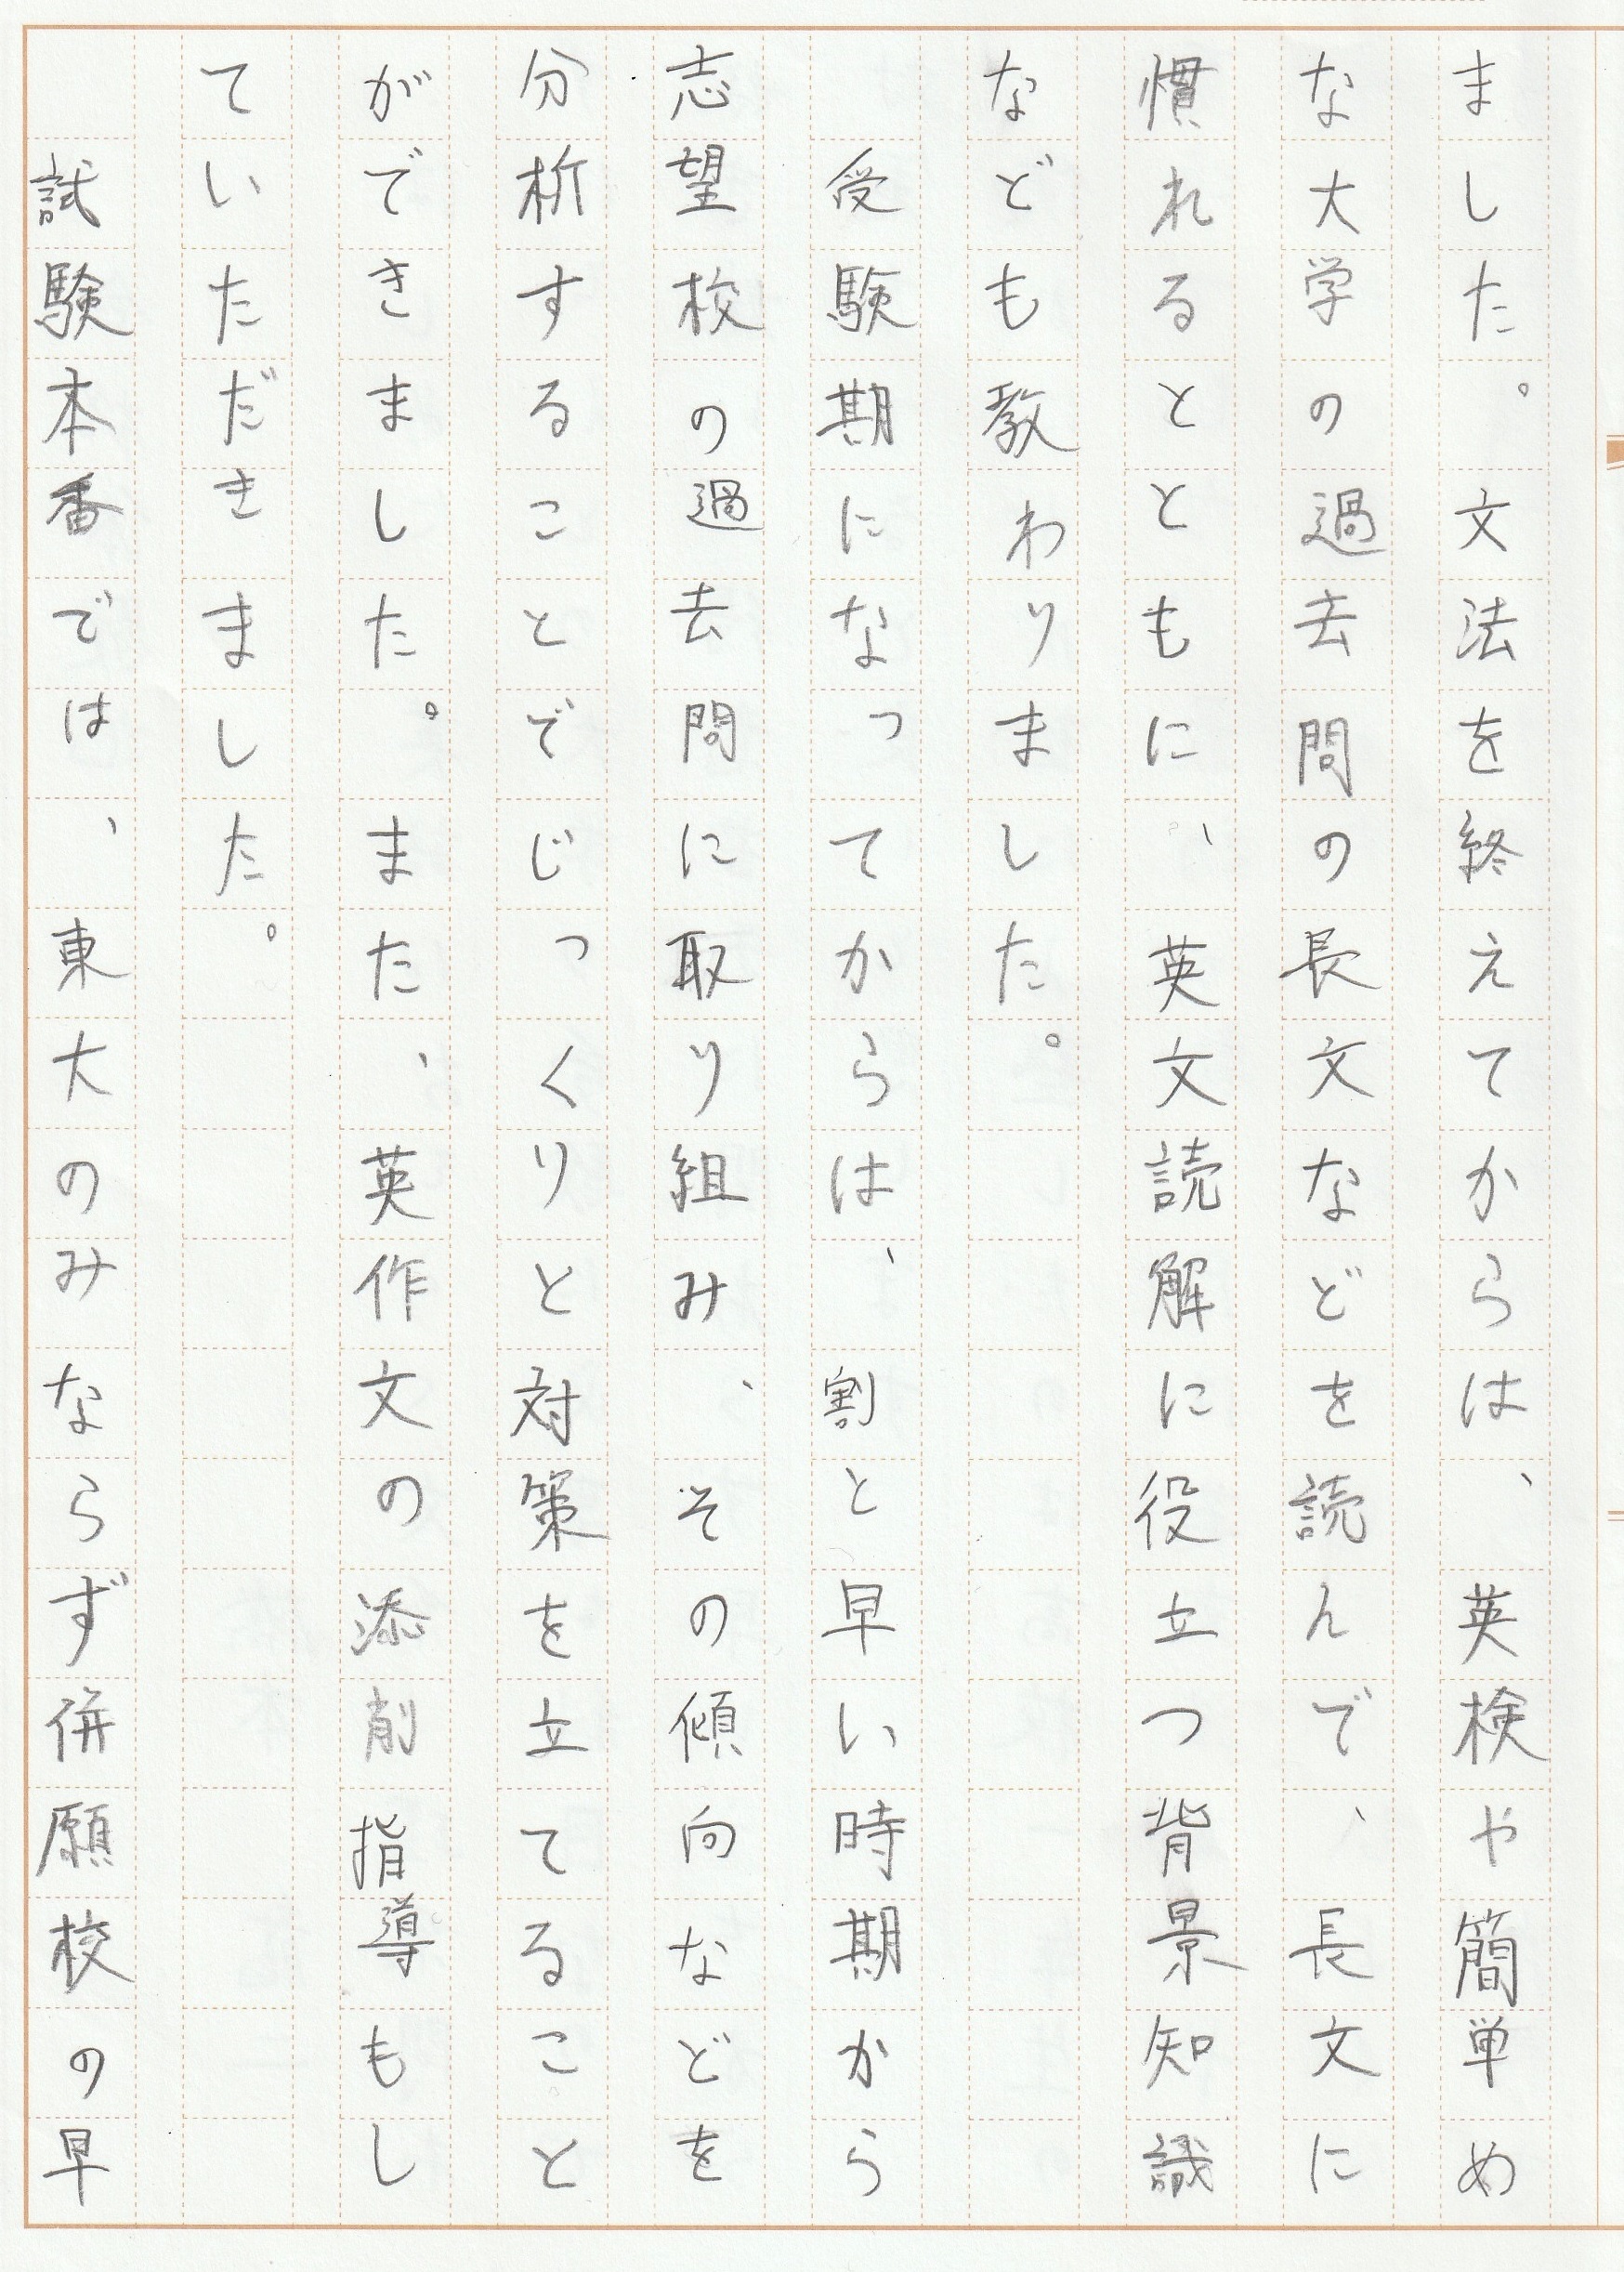 ました。文法を終えてからは、英検や簡単め
な大学の過去問の長文などを読んで、長文に
慣れるとともに、英文読解に役立つ背景知識
なども教わりました。
　受験期になってからは、割と早い時期から
志望校の過去問に取り組み、その傾向などを
分析することでじっくりと対策を立てること
ができました。また、英作文の添削指導もし
ていただきました。
　試験本番では、東大のみならず併願校の早